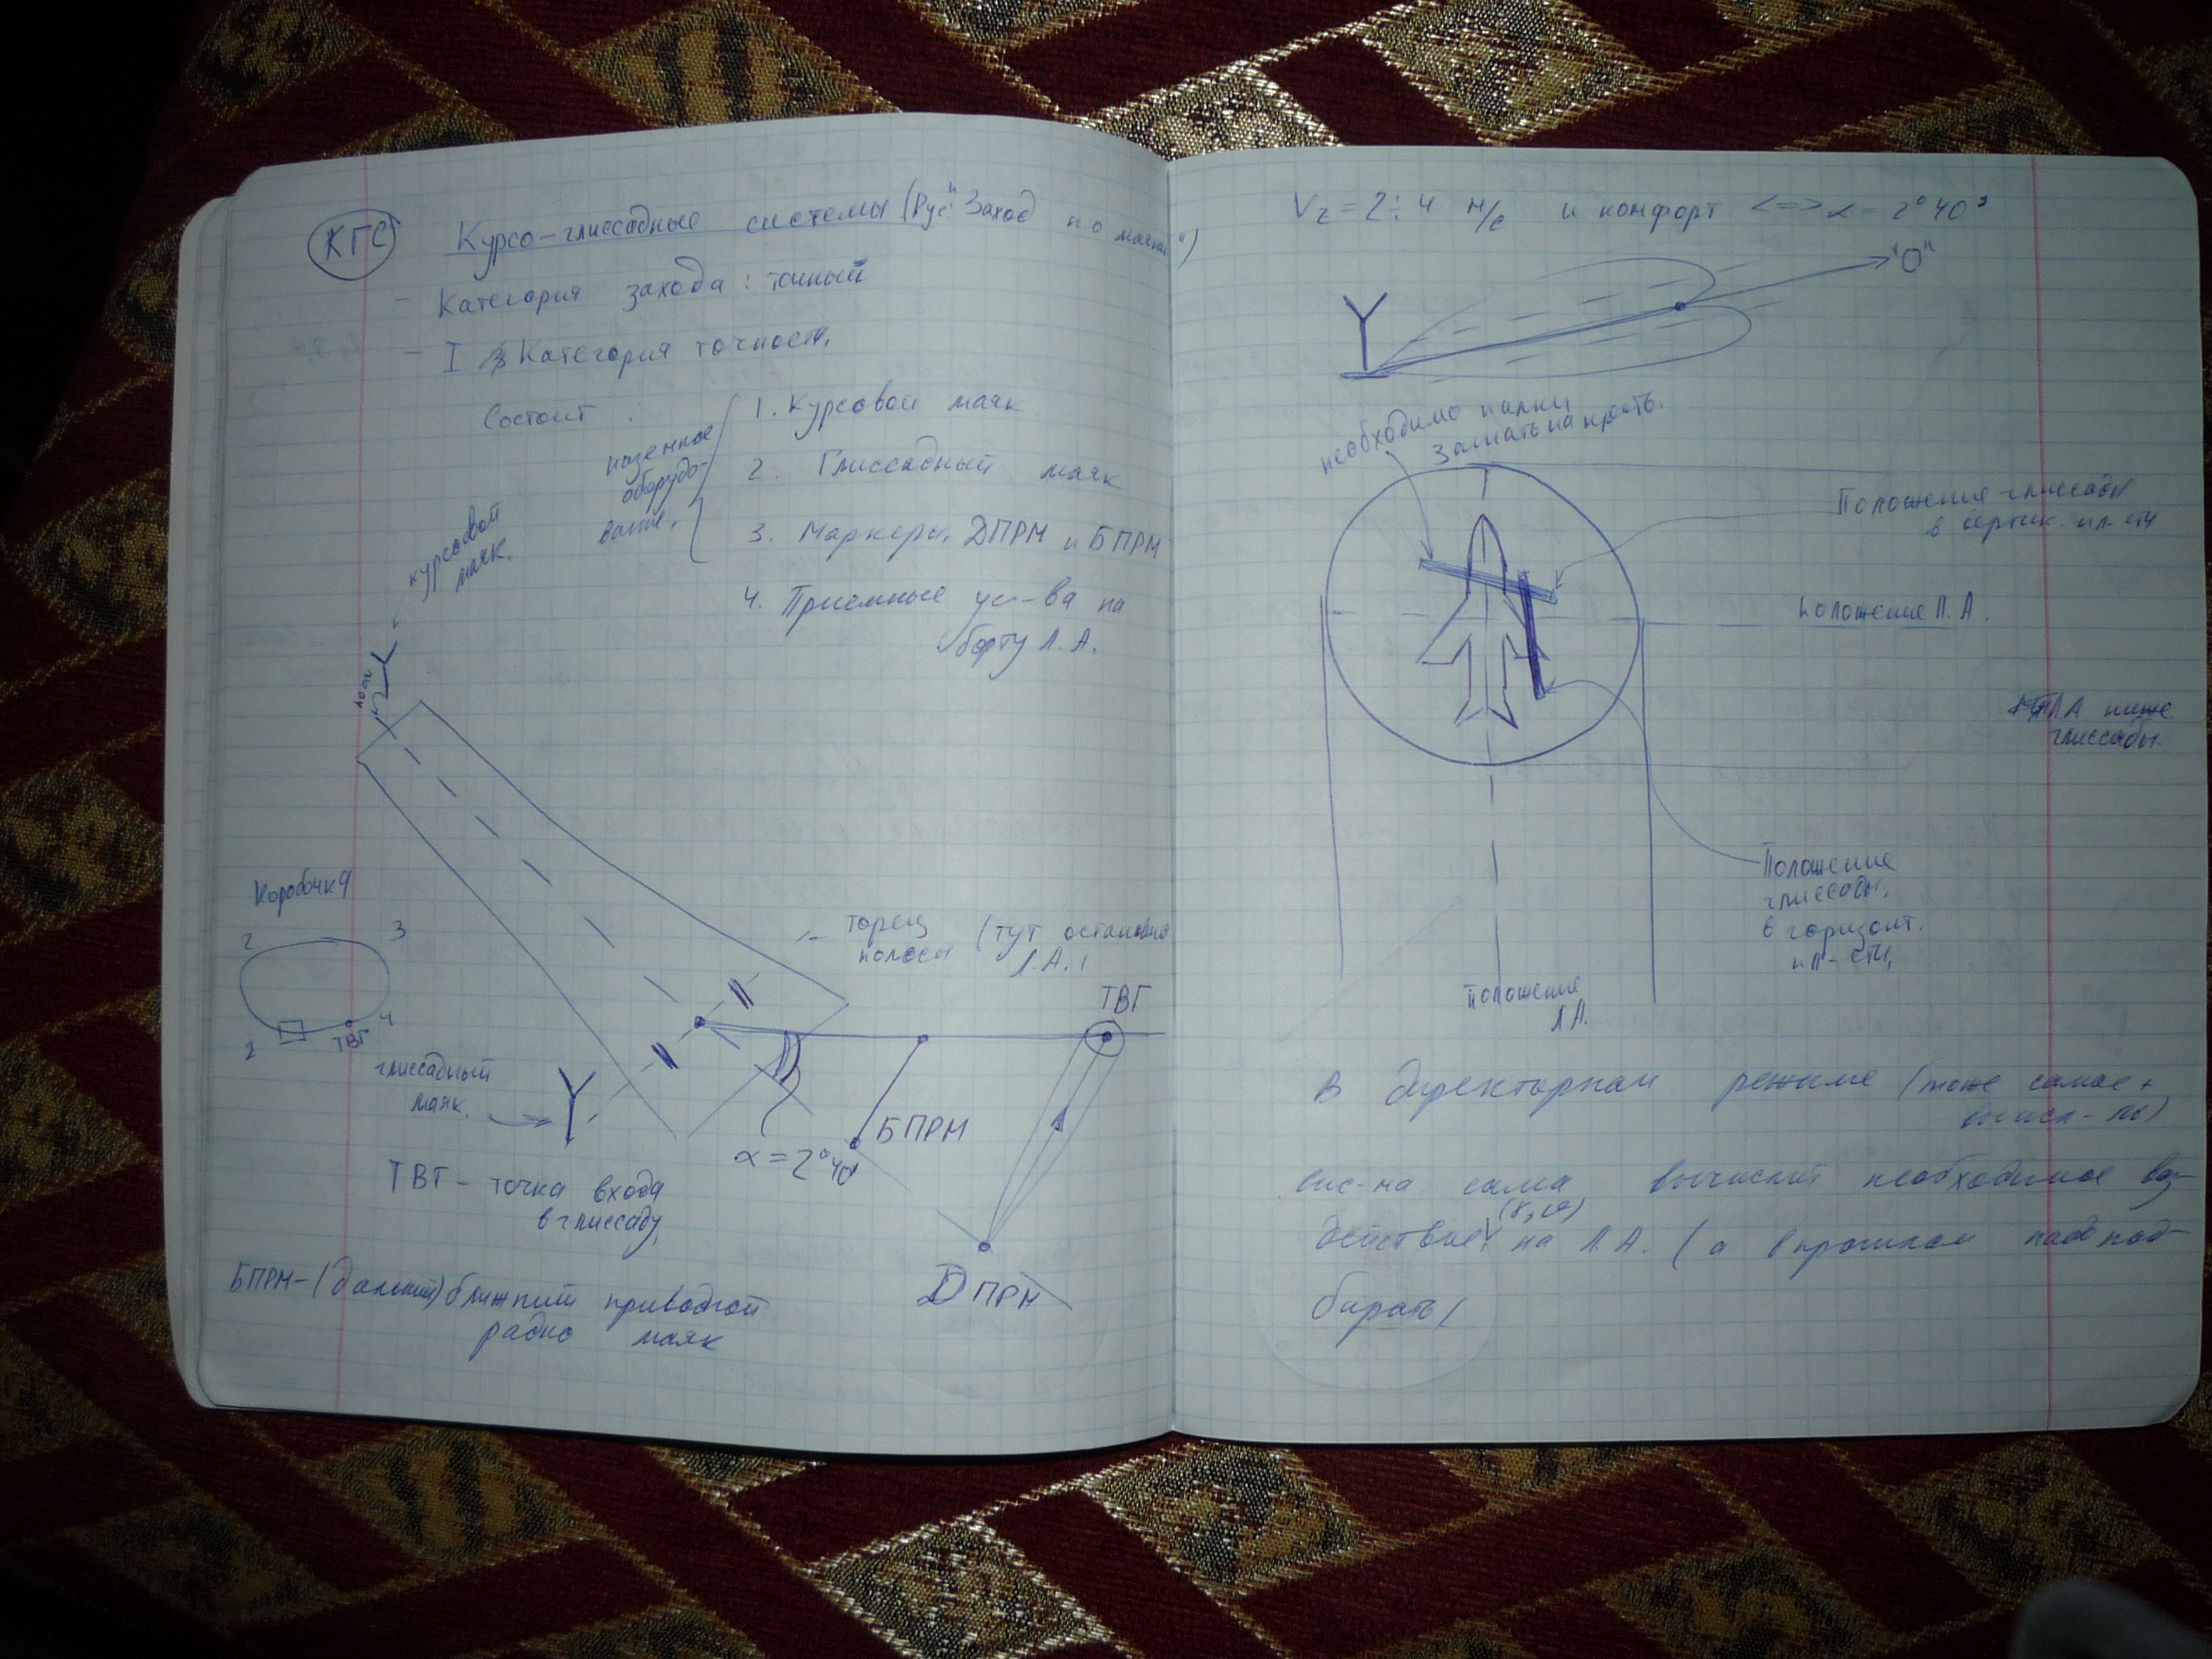 КГС Курсо-глиссадные системы (Рус. "Заход по маякам")
- Категория захода: точный
- I Категория точности.
Состоит:
наземное
оборудо-
вание.
1. Курсовой маяк
2. Глиссадный маяк
3. Маркеры, ДПРМ и БПРМ
4. Приемные ус-ва на
борту Л.А.
курсовой
маяк.
Коробочка
2 3
2 ТВГ 4
торец (тут остановка
полосы Л.А.)
ТВГ
глиссадный
маяк.
БПРМ
α=2°40'
ТВГ - точка входа
в глиссаду.
ДПРМ
БПРМ-(дальний) ближний приводной
радио маяк
Vz = 2÷4 м/с и комфорт <=> α = 2°40'
"0"
необходимо палки
загнать на крест.
Положение глиссады
в вертик. пл-сти
положение Л.А.
Л.А. ниже
глиссады.
Положение
глиссады,
в горизонт.
пл-сти,
Положение
Л.А.
В директорном режиме (тоже самое +
вычисл-ль)
сис-ма сама вычислит необходимое воз-
действие на Л.А. (а в прошлом надо под-
бирать)